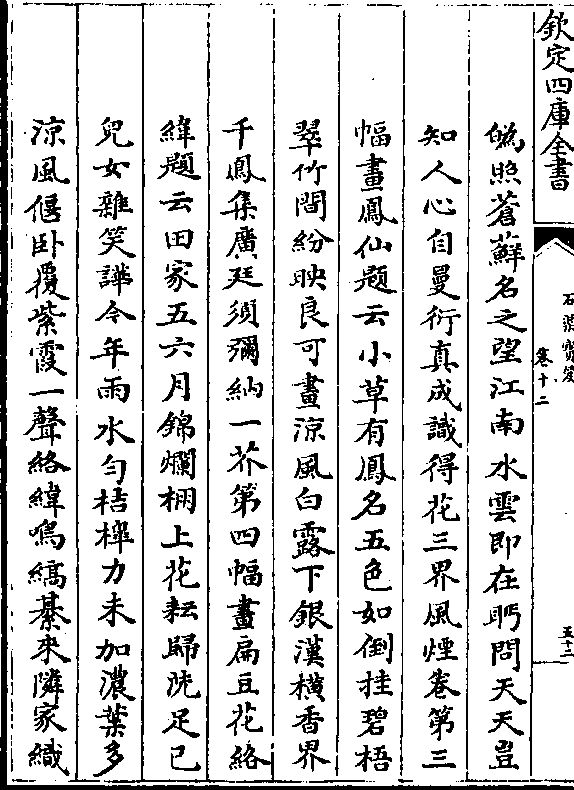 欽定四庫全書
石渠寶笈
卷十二
五十二
鵁照蒼蘚名之望江南水雲即在眄問天天豈
知人心自曼衍真成識得花三界風煙卷第三
幅畫鳳仙題云小草有鳳名五色如倒挂碧梧
翠竹間紛映良可畫涼風白露下銀漢橫香界
千鳳集廣廷須彌納一芥第四幅畫扁豆花絡
緯題云田家五六月錦爛棚上花耘歸洗足已
兒女雜笑譁今年雨水勻桔橰力未加濃葉多
涼風偃卧覆紫霞一聲絡緯鳴縞綦來隣家織